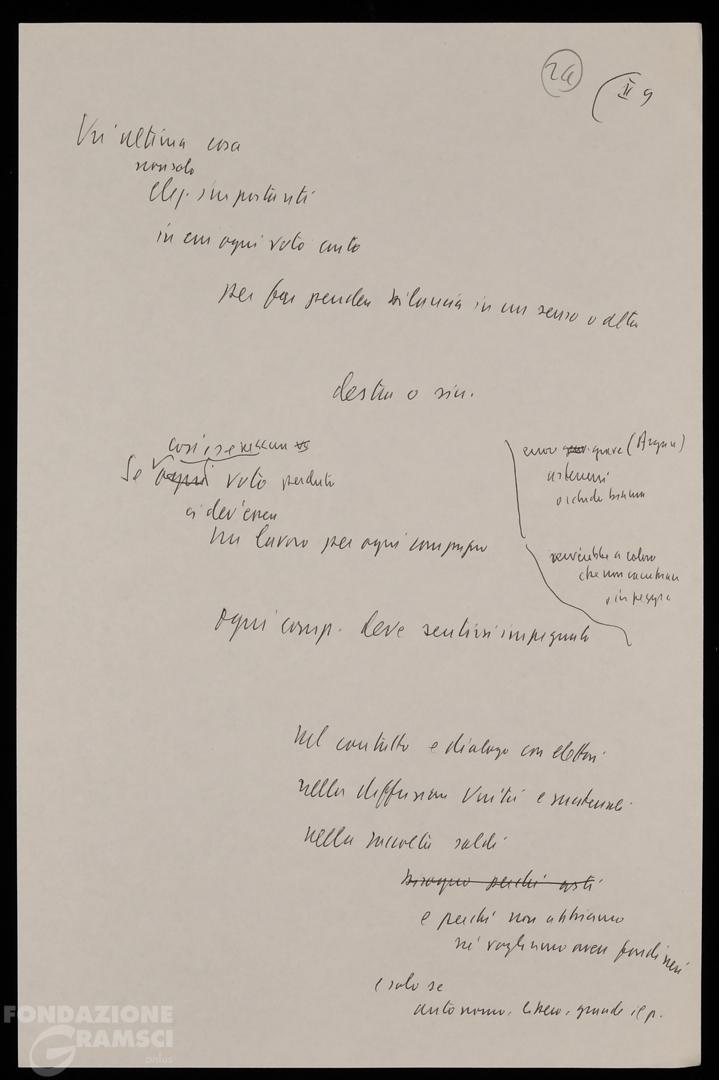 24
II 9
Un'ultima cosa
non solo
elez. importanti
in cui ogni voto conta
per far pendere bilancia in un senso o altro
destra o sin.
così se nessun
Se ogni voto perduto
ci dev'essere
un lavoro per ogni compagno
errore grave (Argan)
astenersi
o scheda bianca
servirebbe a coloro
che non
ogni comp. deve sentirsi impegnato
nel contatto e dialogo con elettori
nella diffusione Unità e materiale
nella raccolta soldi
bisogno perché
e perché non abbiamo
né vogliamo avere fondi neri
e solo se
autonomo, libero, grande il p.
FONDAZIONE
GRAMSCI
onlus